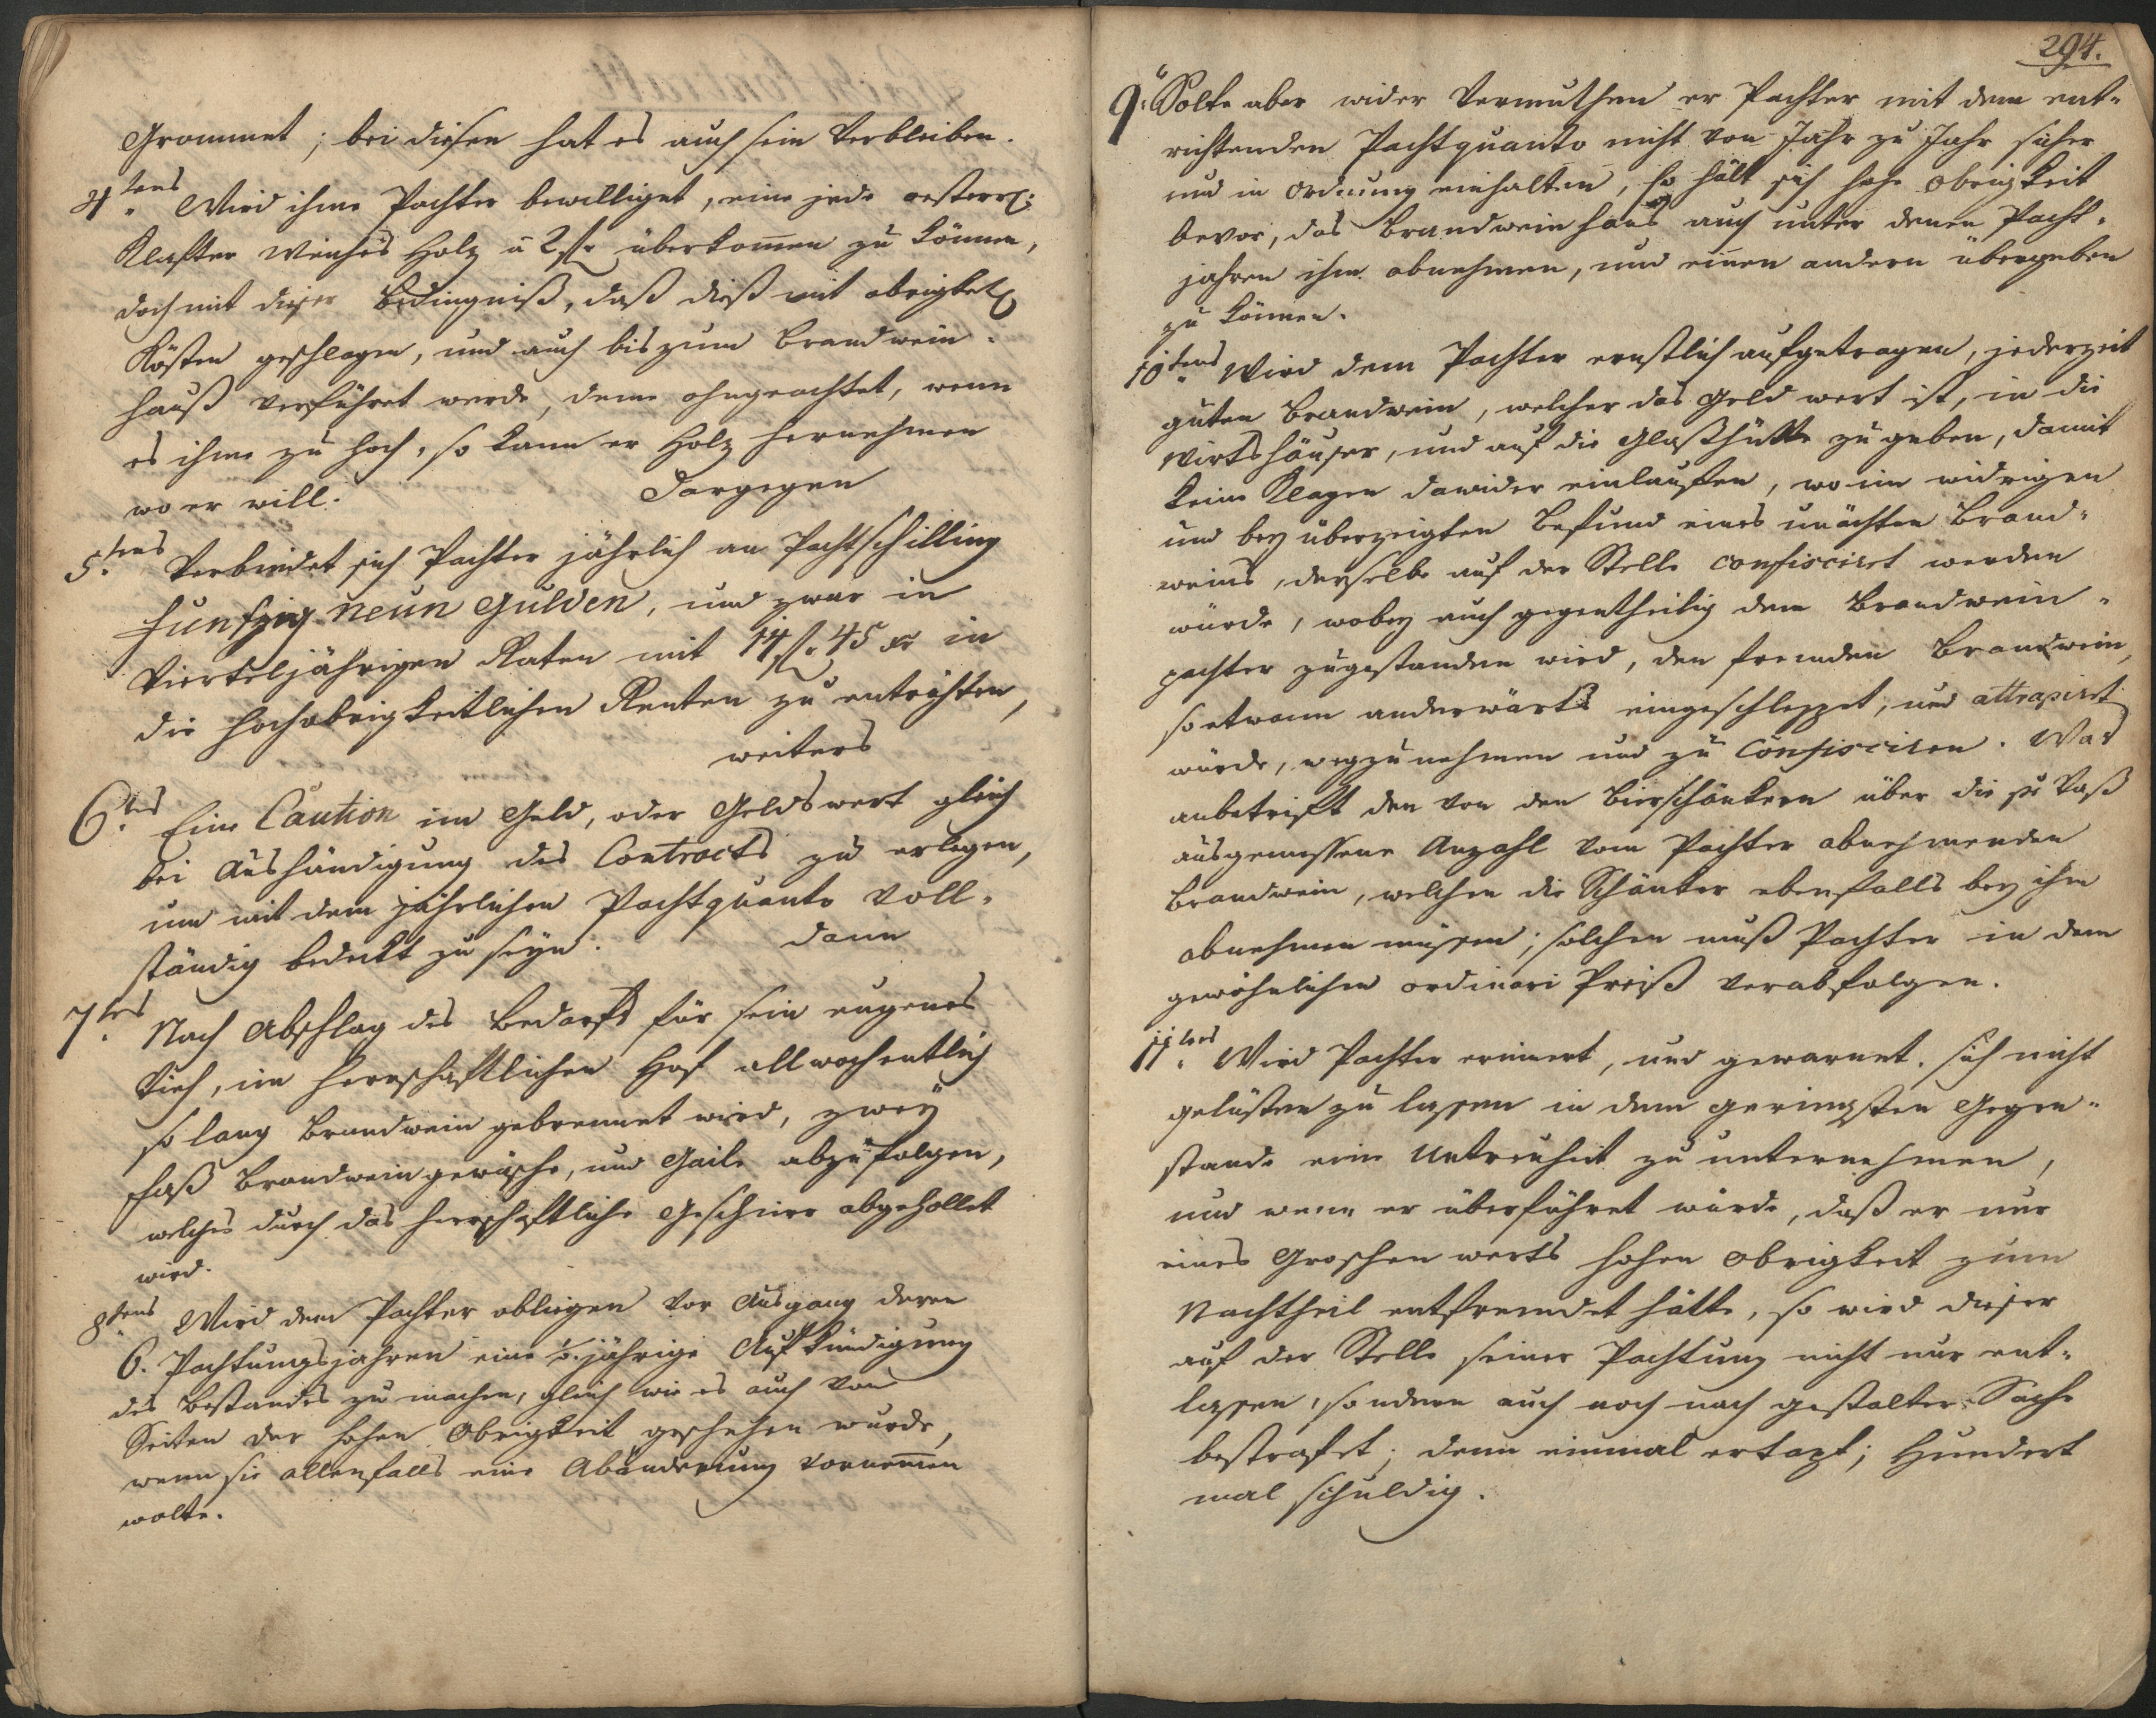 Grommet; bei diesen hat es auch sein Verbleiben.
4tens Wird ihme Pachter bewilliget, eine jede oesterr:
Klafter weiches Holz a 2 fl. überkom̄en zu können,
doch mit dieser Bedingniß, daß dieß mit obrigktl
Kösten geschlagen, und auch bis zum Brandwein-
hauß verführet werde, deme ohngeachtet, wenn
es ihme zu hoch, so kann er Holz hernehmen
wo er will. Dargegen
5tens Verbindet sich Pachter jährlich an Pachtschilling
funfzig neun Gulden, und zwar in
Vierteljährigen Raten mit 14 fl. 45 xr in
die hochobrigkeitlichen Renten zu entrichten,
weiters
6tes Eine Caution im Geld, oder Geldswert gleich
bei Aushändigung des Contracts zu erlegen,
um mit dem jährlichen Pachtquanto voll-
ständig bedeckt zu seyn. dann
7tes Nach Abschlag des Bedarfs für sein eugenes
Vieh, im herrschaftlichen Hof allwochentlich
so lang Brandwein gebrennet wird, zwey
Faß Brandweingewäsche, und Gaile abzufolgen,
welches durch das herrschaftliche Geschirr abgehollet
wird.
8tens Wird dem Pachter obliegen vor Ausgang deren
6. Pachtungsjahren eine jährige Aufkündigung
des Bestandes zu machen, gleich wie es auch von
Seiten der hohen Obrigkeit geschehen wurde,
wenn sie allenfalls eine Abänderung vornem̄en
wolte.
294.
9. Solte aber wider Vermuthen er Pachter mit dem ent-
richtenden Pachtquanto nicht von Jahr zu Jahr sicher
und in Ordnung einhalten, so hält sich hohe Obrigkeit
bevor, das Brandweinhaus auch unter denen Pacht-
jahren ihm abnehmen, und einen andern übergeben
zu können.
10tens Wird dem Pachter ernstlich aufgetragen, jederzeit
guten Brandwein, welcher das Geld wert ist, in die
Wirtshäuser, und auf die Glaßhütte zu geben, damit
keine Klagen dawider einlauffen, wo im widrigen
und bey überzeigten Befund eines unächten Brand-
weins, derselbe auf der Stelle confisciret werden
würde, wobey auch gegentheilig dem Brandwein-
pachter zugestanden wird, den fremden Brandwein,
so etwann anderwärts eingeschleppet, und attrapiret
würde, wegzunehmen und zu confisciren. Was
anbetrifft den von den Bierschänkern über die pr Vaß
ausgemessene Anzahl vom Pachter abnehmenden
Brandwein, welchen die Schänker ebenfalls bey ihm
abnehmen müssen; solchen muß Pachter in dem
gewöhnlichen ordinari Preiß verabfolgen.
11tens Wird Pachter erinnert, und gewarnet, sich nicht
gelüsten zu lassen in dem geringsten Gegen-
stande eine Untreuheit zu unternehmen,
und wenn er überführet würde, daß er nur
eines Groschen werts hohen Obrigkeit zum
Nachtheil entfremdet hätte, so wird dieser
auf der Stelle seiner Pachtung nicht nur ent-
lassen, sondern auch noch nach gestalter Sache
bestrafet; denn einmal ertapt; Hundert
mal schuldig.